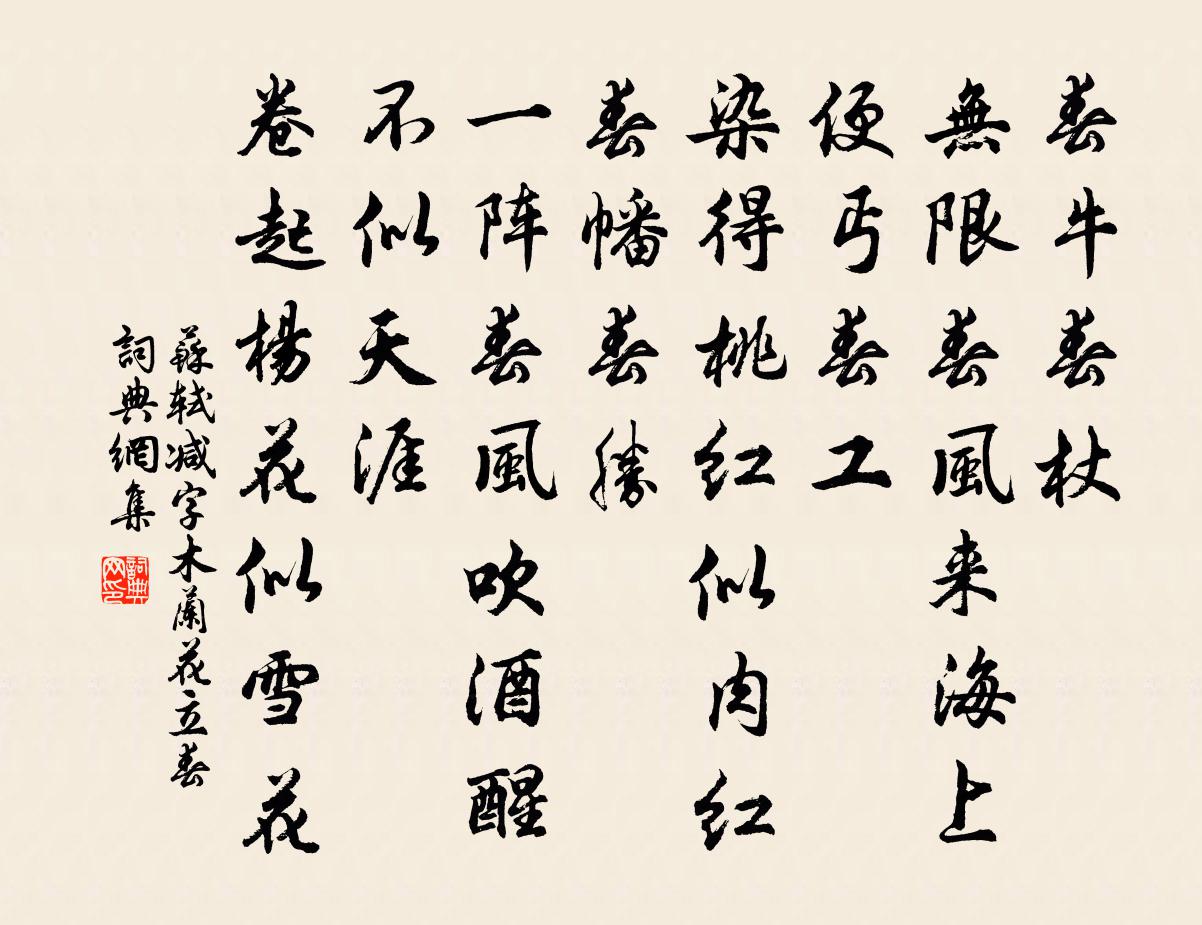 春牛春杖
無限春風来海上
便丐春工
染得桃红似肉红
春幡春勝
一阵春風吹酒醒
不似天涯
卷起楊花似雪花
蘇轼减字木蘭花立春
詞典網集
詞典网印